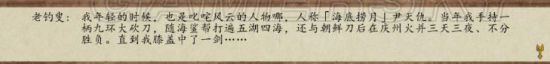 老钓叟： 我年轻的时候，也是叱咤风云的人物哪，人称「海底捞月」尹天仇。当年我手持一
柄九环大砍刀，随海鲨帮打遍五湖四海，还与朝鲜刀后在庆州火并三天三夜、不分
胜负。直到我膝盖中了一剑……